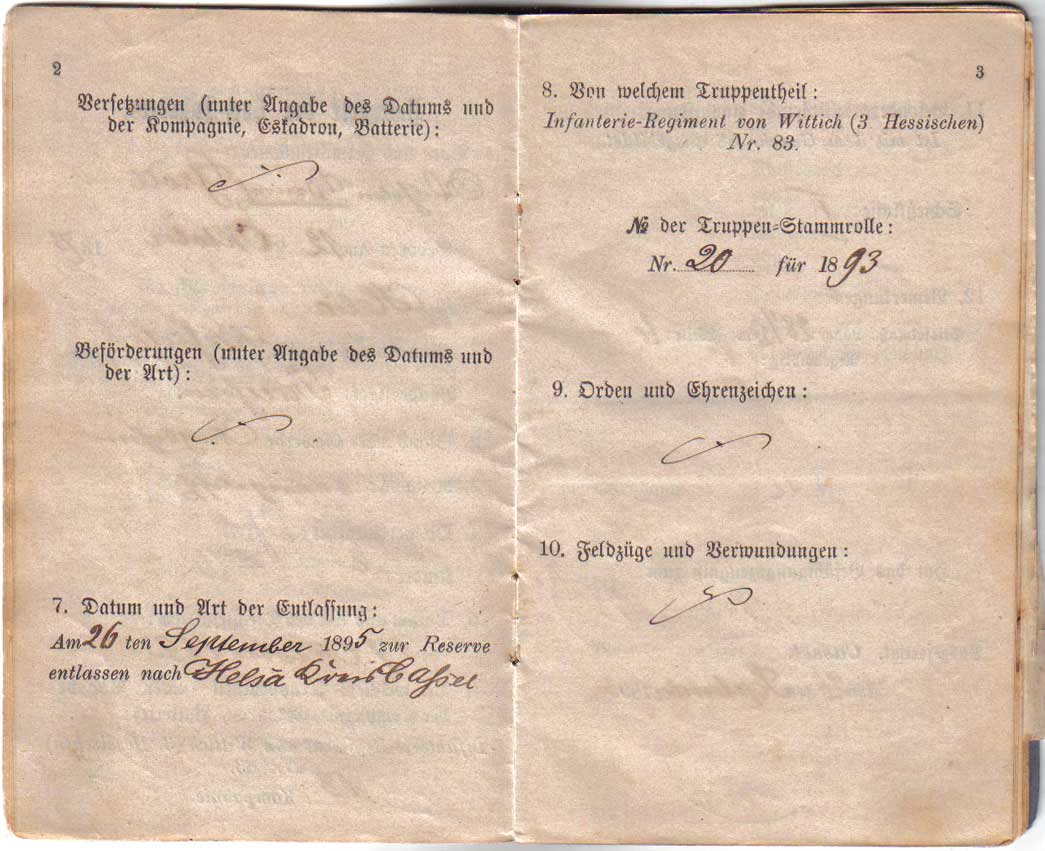 2
Versetzungen (unter Angabe des Datums und
der Kompagnie, Eskadron, Batterie):
Beförderungen (unter Angabe des Datums und
der Art):
7. Datum und Art der Entlassung:
Am 26 ten September 1895 zur Reserve
entlassen nach Helsa Kreis Cassel
3
8. Von welchem Truppentheil:
Infanterie-Regiment von Wittich (3. Hessischen)
Nr. 83.
№ der Truppen-Stammrolle:
Nr. 20 für 1893
9. Orden und Ehrenzeichen:
10. Feldzüge und Verwundungen: